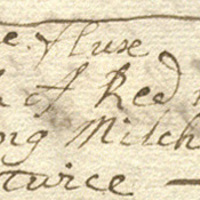 e. fluxe
of Red
ong Milch
twice —